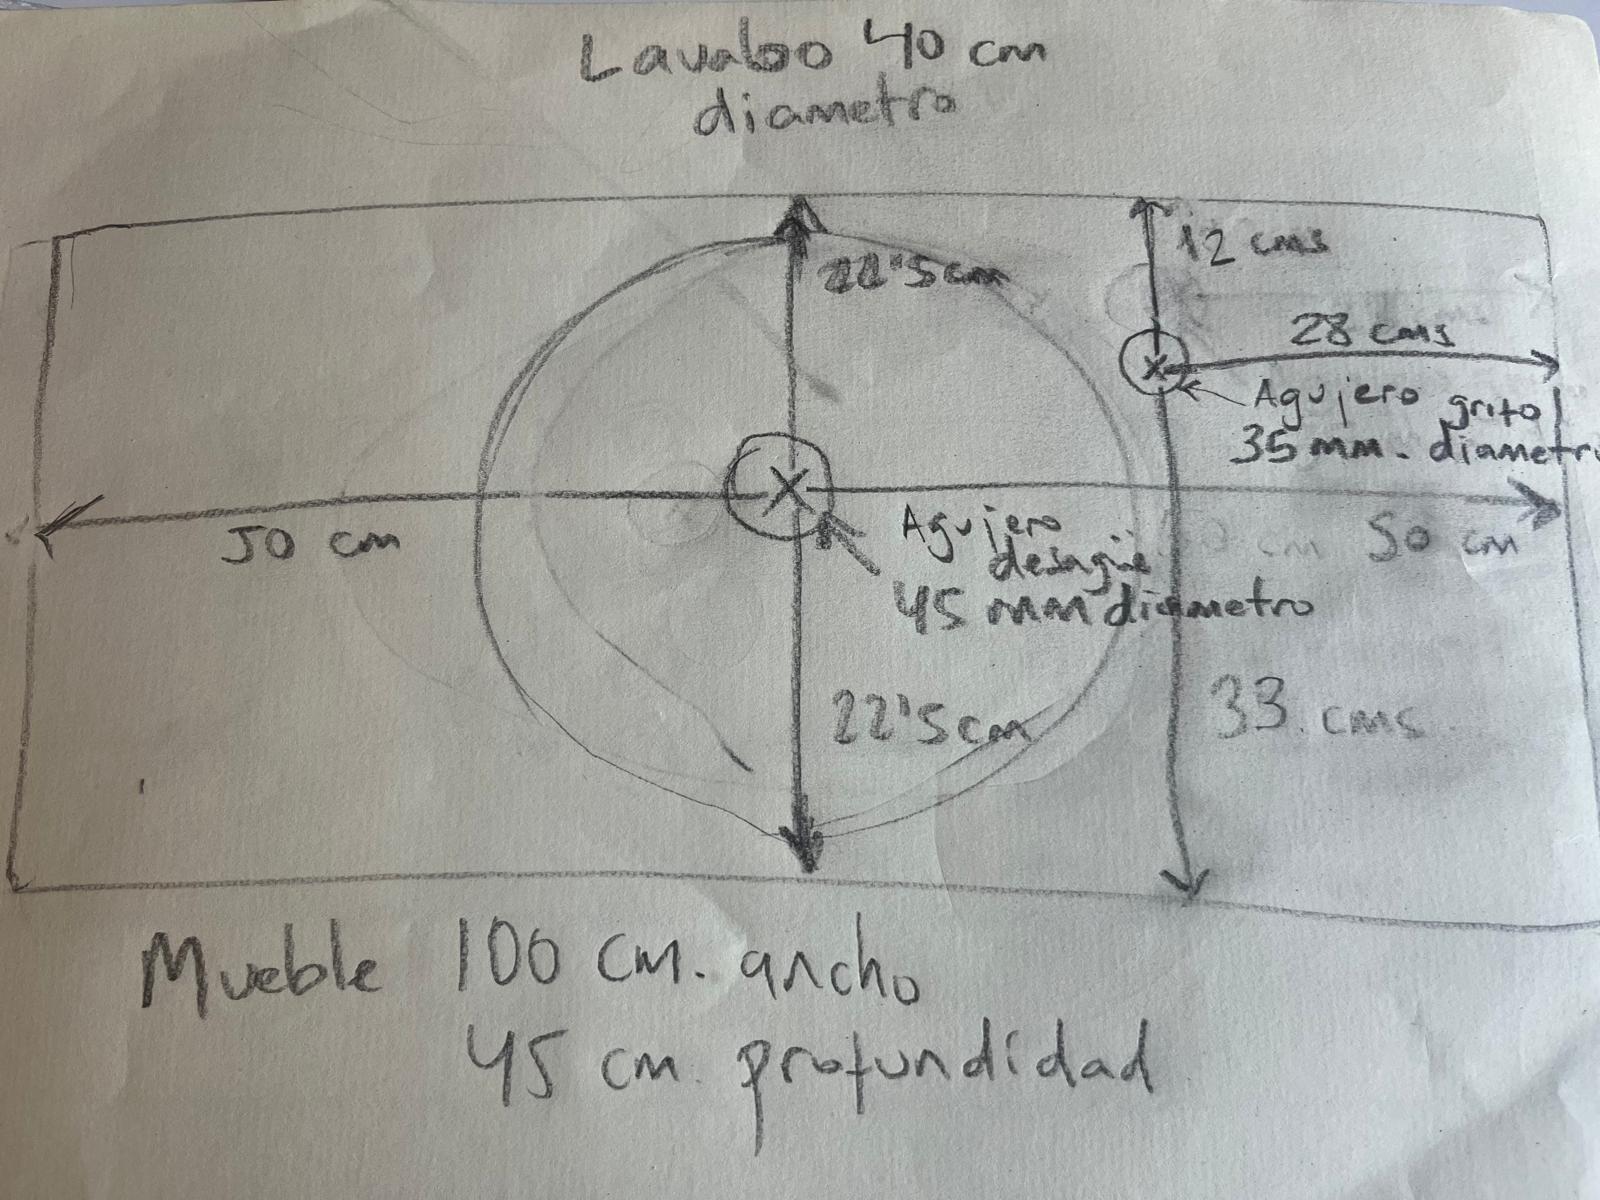 Lavabo 40 cm
diametro
22'5 cm
12 cms
28 cms
Agujero grifo
35 mm. diametro
50 cm
Agujero
desagüe
45 mm diametro
50 cm
22'5 cm
33 cms
Mueble 100 cm. ancho
45 cm. profundidad